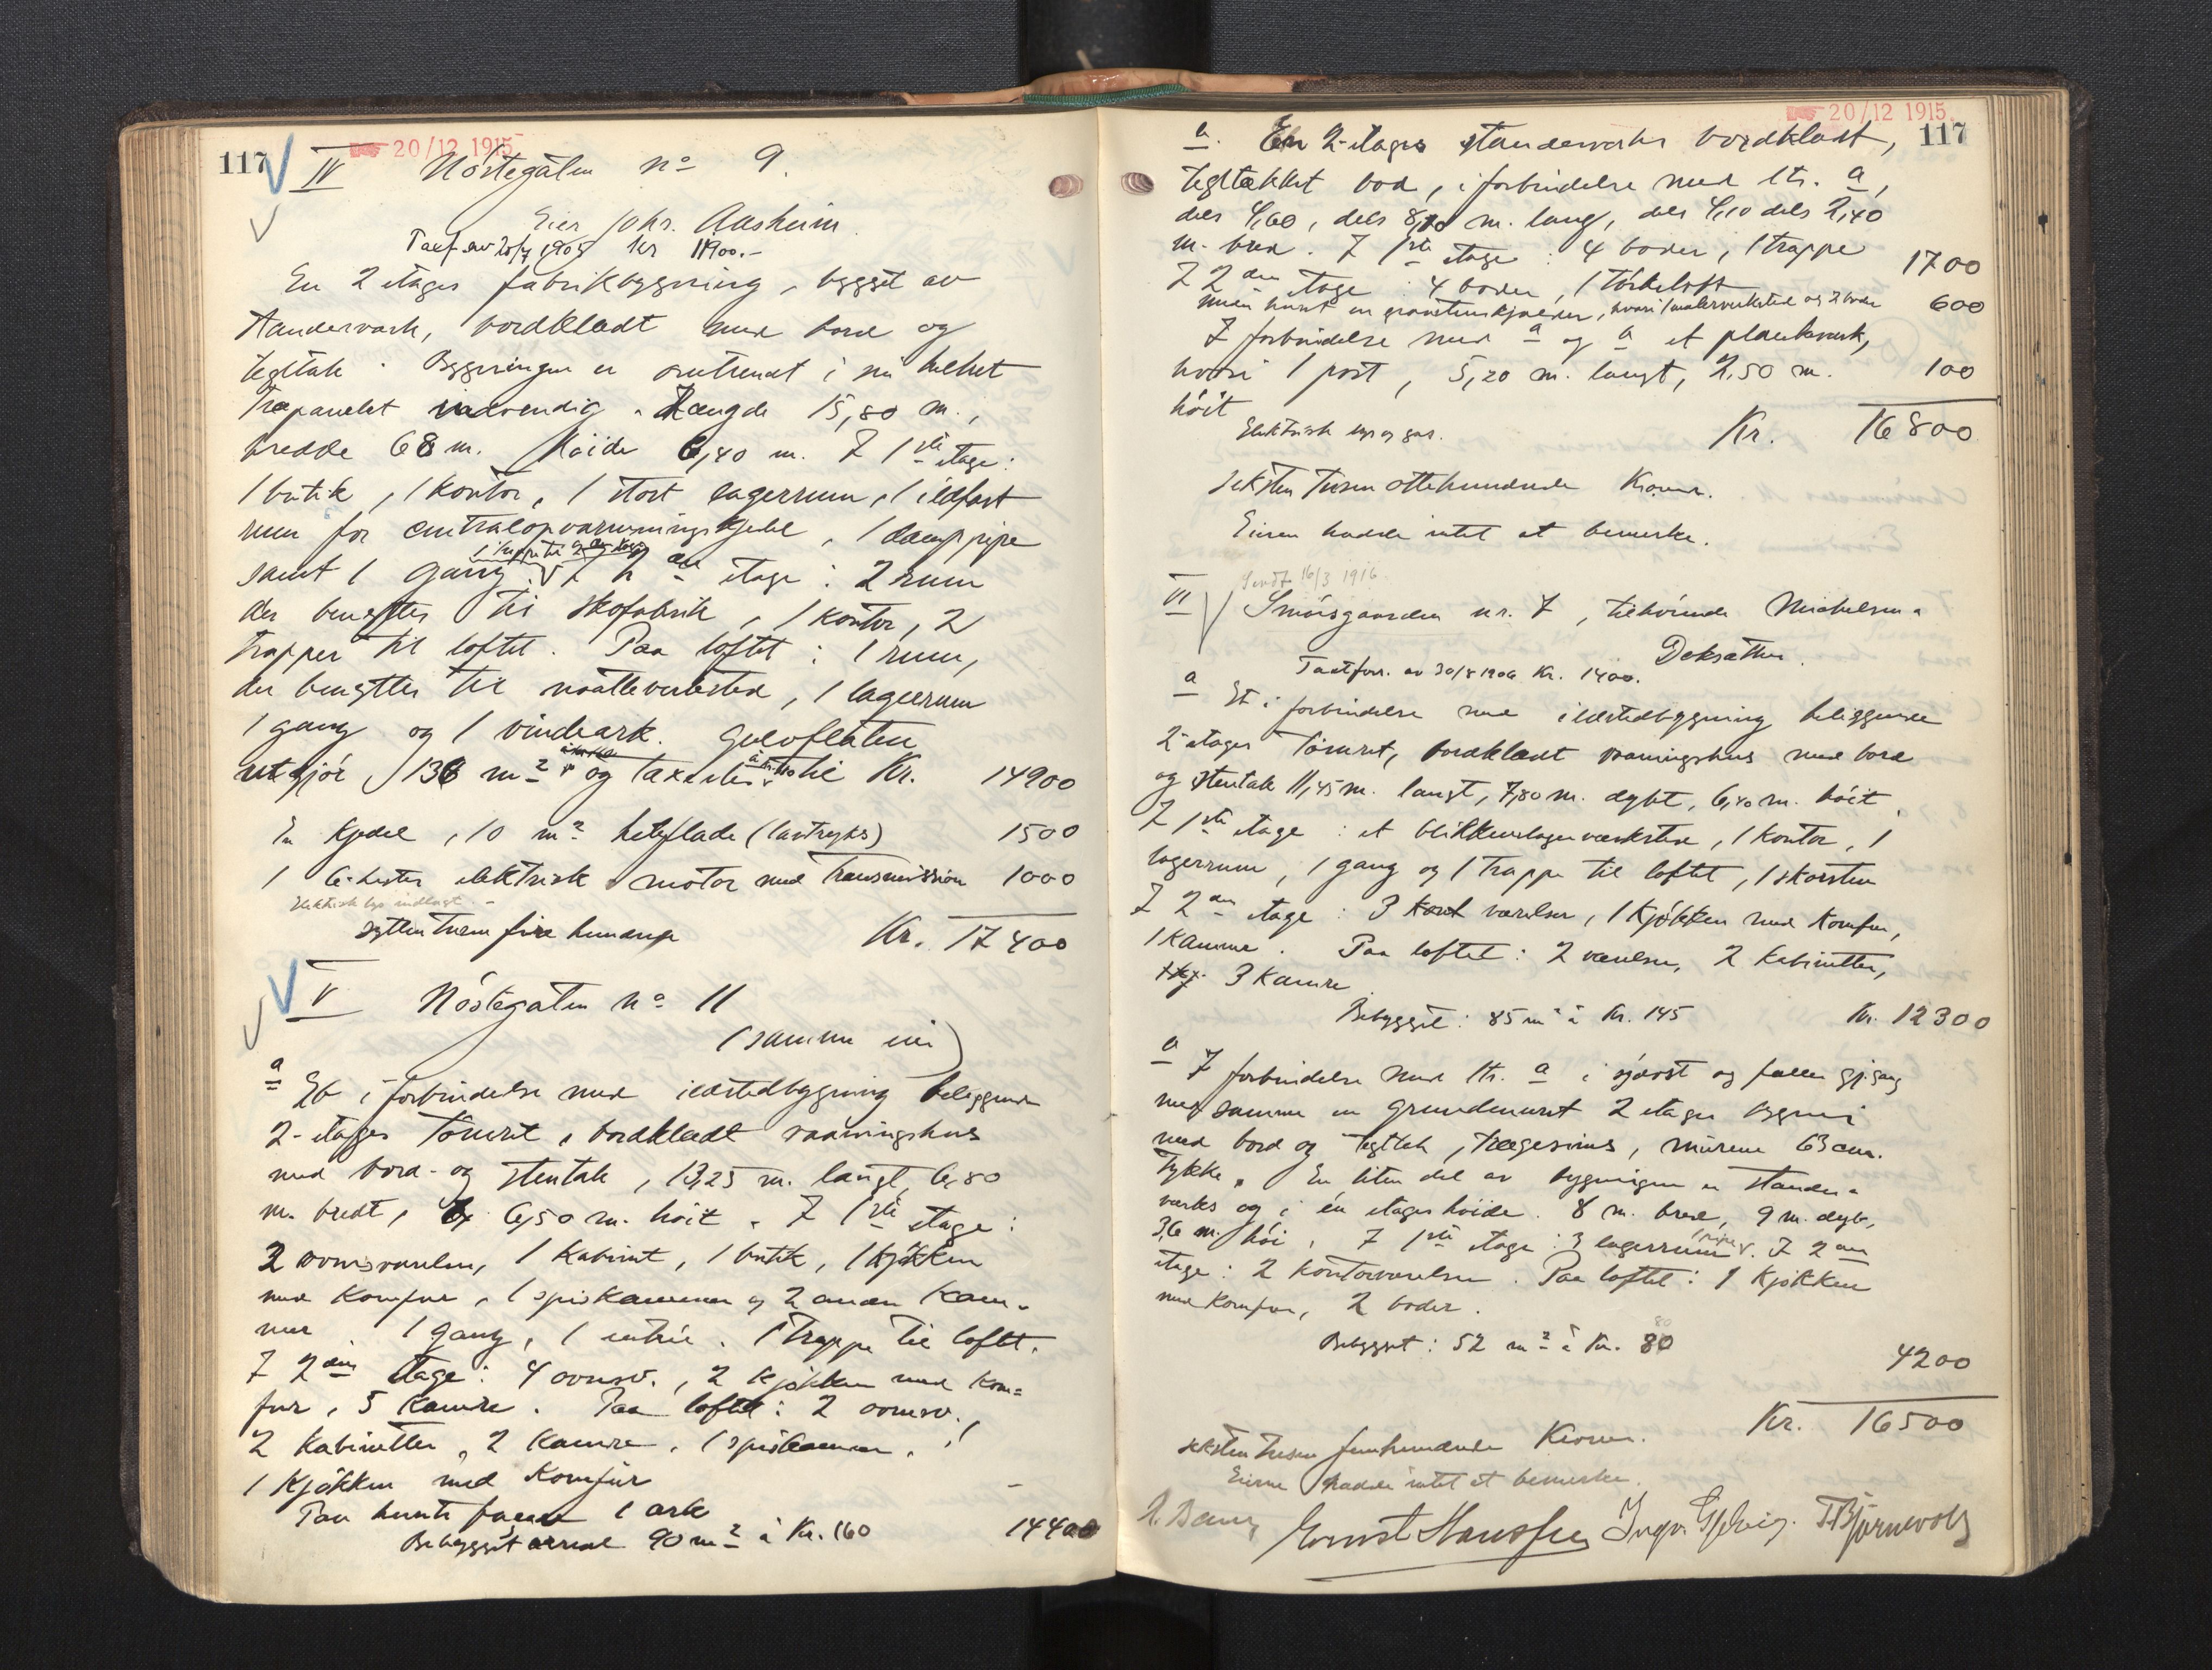 117
20/12 1915
IV Nöstegaten no 9.
Eier Johs. Aasheim.
Taxf. av 20/7 1905 Kr 11900.-
En 2 etages fabrikbygning, bygget av
standerværk, bordklædt med bord og
tegltak. Bygningen er omtrendt i sin helhet
træpanelet indvendig. Længde 15,80 m.,
bredde 68 m. Höide 6,40 m. I 1ste etage:
1 butik, 1 kontor, 1 stort lagerrum, 1 ildfast
rum for centralopvarmningskjedel, 1 damppipe
samt 1 gang. I 2den etage: 2 rum
der benyttes til skofabrik, 1 kontor, 2
trapper til loftet. Paa loftet: 1 rum,
der benyttes til naatleverksted, 1 lagerrum
1 gang og 1 vindeark. Gulvflaten
utgjör 136 m2 og taxertes à kr. 110 til Kr. 14900
En kjedel, 10 m2 heteflade (lavtryks) 1500
1 6-hesters elektrisk motor med transmission 1000
Elektrisk lys indlagt.
sytten tusen fire hundre Kr. 17400
V Nöstegaten no 11
(samme eier)
a Et i forbindelse med ildstedbygning beliggende
2-etages tömret, bordklædt vaaningshus
med bord- og stentak, 13,25 m. langt, 6,80
m. bredt, 6,50 m. höit. I 1ste etage:
2 ovnsværelser, 1 kabinet, 1 butik, 1 kjökken
med komfur, 1 spiskammer og 2 andre kam-
mer. 1 gang, 1 entrée. 1 trappe til loftet.
I 2den etage: 4 ovnsv., 2 kjökken med kom=
fur, 5 kamre. Paa loftet: 2 ovnsv.,
2 kabinetter, 2 kamre, 1 spiskammer,
1 kjökken med komfur
Paa hunte facade 1 ark
Bebygget areal 90 m2 à Kr. 160 14400
20/12 1915
117
a. En 2-etages standerverks bordklædt,
tegltækket bod, i forbindelse med ltr. a,
dels 4,60, dels 8,10 m. lang, dels 4,10 dels 2,40
m. bred. I 1ste etage: 4 boder, 1 trappe
I 2den etage: 4 boder, 1 törkeloft 1700
under huset en graastenskjælder, hvori 1 malerverksted og 2 boder 600
I forbindelse med a og a et plankeverk,
hvori 1 port, 5,20 m. langt, 2,50 m. 100
höit
Elektrisk lys og gas. Kr. 16800
seksten tusen ottehundrede Kroner.
Eieren hadde intet at bemerke.
Sendt 16/3 1916.
VI Smörsgaarden nr. 7, tilhörende Michelsen &
Deksæther.
Taxtforr. av 30/8 1906 Kr. 1400.
a Et i forbindelse med ildstedbygning beliggende
2-etages tömret, bordklædt vaaningshus med bord
og stentak 11,45 m. langt, 7,80 m. dypt, 6,40 m. höit.
I 1ste etage: et blikkenslagerværksted, 1 kontor, 1
lagerrum, 1 gang og 1 trappe til loftet, 1 skorsten
I 2den etage: 3 værelser, 1 kjökken med komfur,
1 kammer. Paa loftet: 2 værelser, 2 kabinetter,
3 kamre
Bebygget: 85 m2 à Kr. 145 Kr. 12300
a I forbindelse med ltr. a i sydost og fælles gjang
med samme en grundmuret 2 etages bygning
med bord og tegltak, trægesims, murene 63 cm.
tykke. En liten del av bygningen er stander-
værks og i én etages höide. 8 m. bred, 9 m. dyb,
3,6 m. höi. I 1ste etage: 3 lagerrum. I 2den
etage: 2 kontorværelser. Paa loftet: 1 kjökken
med komfur, 2 boder.
Bebygget: 52 m2 à Kr. 80
4200
Kr. 16500
seksten tusen femhundrede Kroner.
Eierne hadde intet at bemerke.
Ernst Hanssen Ingv. Gjelvig. T. Björnevold